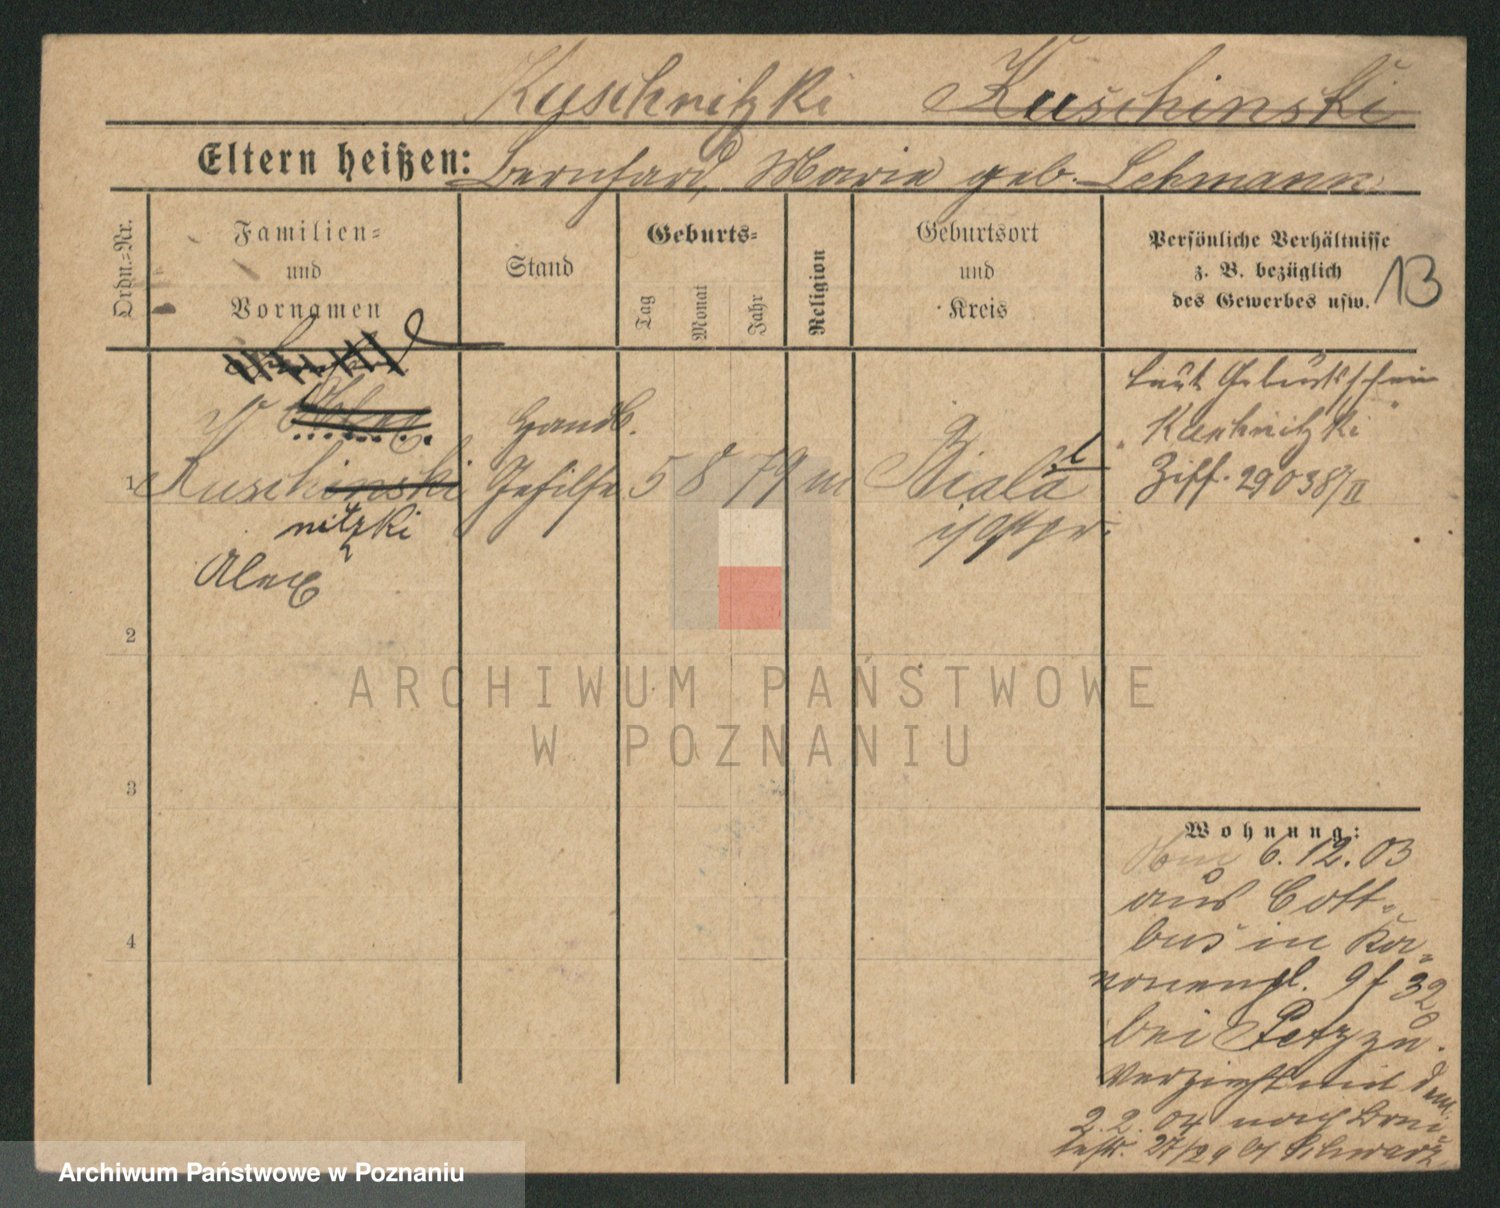 Kuschnitzki Kuschinski
Eltern heißen: Bernhard, Marie geb. Lehmann
Ordn.=Nr.
Familien=
und
Vornamen
Stand
Geburts=
Tag
Monat
Jahr
Religion
Geburtsort
und
Kreis
Persönliche Verhältnisse
z. B. bezüglich
des Gewerbes usw.
13
1
Kuschinski
nitzki
Alex
Handl.
Gehilfe
5 8 79 m
Biala
i/Ostpr.
Laut Geburtsschein
Kuschnitzki
Ziff. 29038/II
2
3
4
Wohnung:
6.12.03
aus Cott=
bus in
32
bei Petz zu.
Verzieht mit dem
2.2.04 nach
27/29 Schwarz
ARCHIWUM PAŃSTWOWE
W POZNANIU
Archiwum Państwowe w Poznaniu